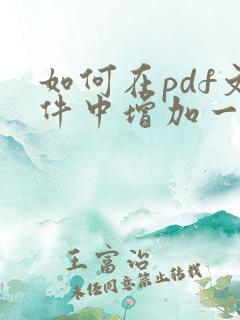 如何在pdf文
件中增加一
王富治
未经同意禁止转载